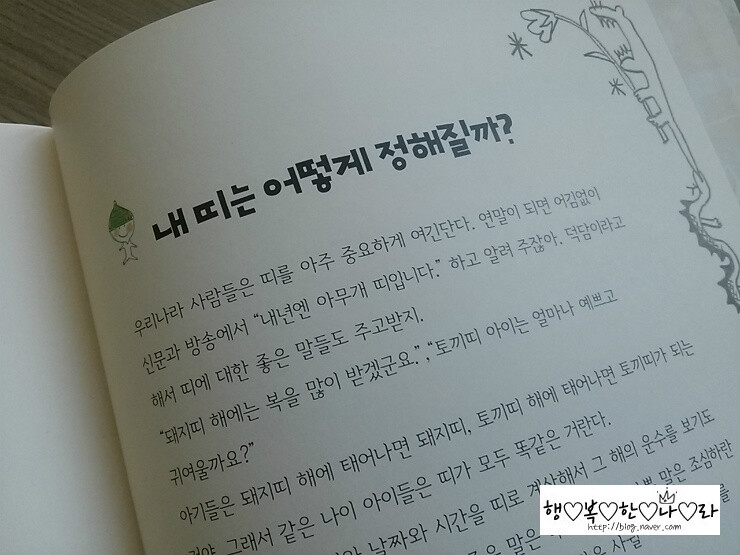 내 띠는 어떻게 정해질까?
우리나라 사람들은 띠를 아주 중요하게 여긴단다. 연말이 되면 어김없이
신문과 방송에서 “내년엔 아무개 띠입니다.” 하고 알려 주잖아. 덕담이라고
해서 띠에 대한 좋은 말들도 주고받지.
“돼지띠 해에는 복을 많이 받겠군요.”, “토끼띠 아이는 얼마나 예쁘고
귀여울까요?”
아기들은 돼지띠 해에 태어나면 돼지띠, 토끼띠 해에 태어나면 토끼띠가 되는
거야. 그래서 같은 나이 아이들은 띠가 모두 똑같은 거란다.
날짜와 시간을 띠로 계산해서 그 해의 운수를 보기도
말은 조심하란
행♡복♡한♡나♡라
http://blog.naver.com/